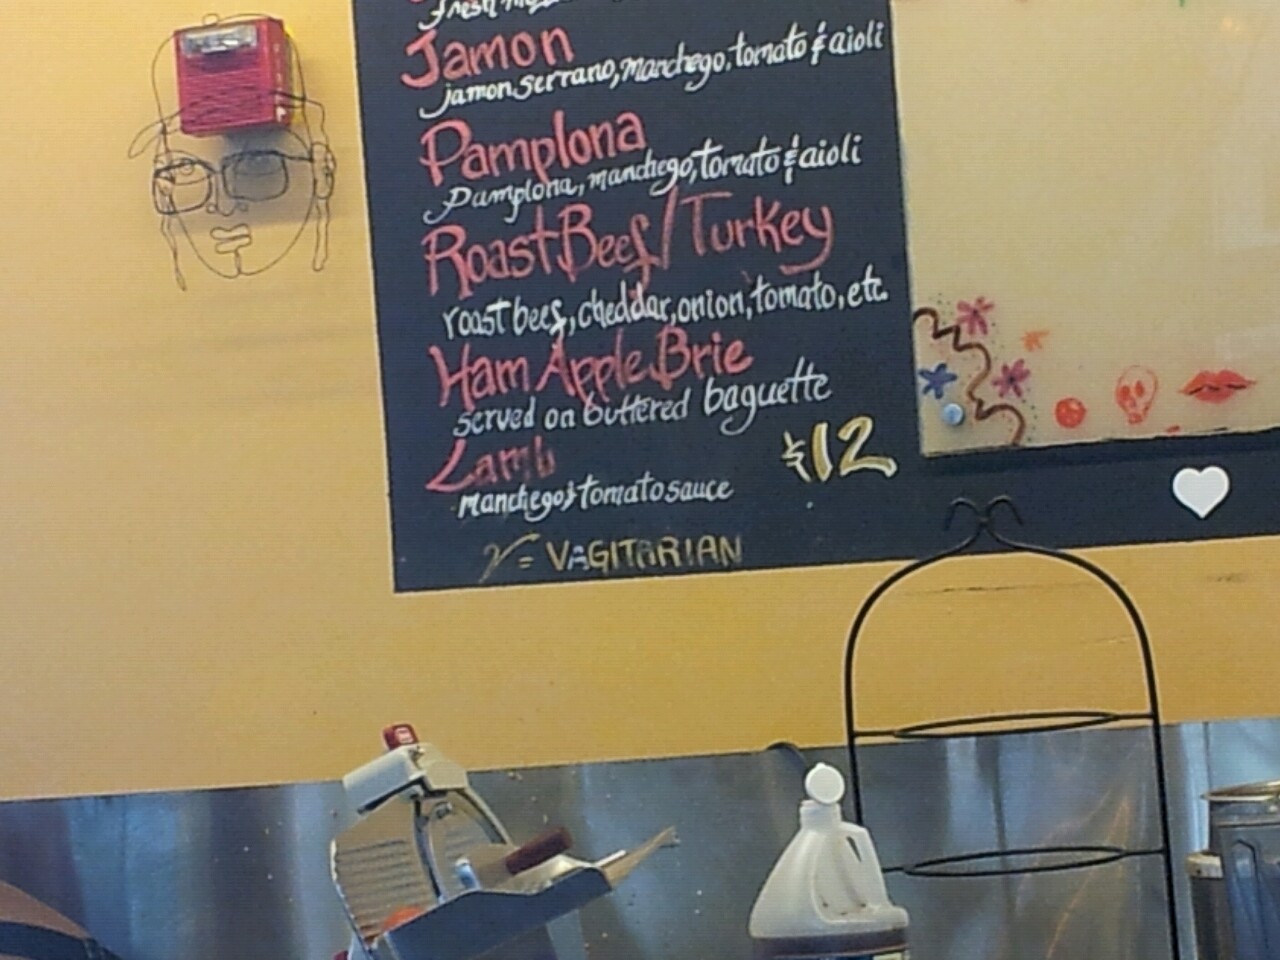 fresh
Jamon
jamon serrano, manchego, tomato & aioli
Pamplona
Pamplona, manchego, tomato & aioli
Roast Beef/Turkey
roast beef, cheddar, onion, tomato, etc.
Ham Apple Brie
served on buttered baguette
Lamb
manchego & tomato sauce
$12
V = VAGITARIAN